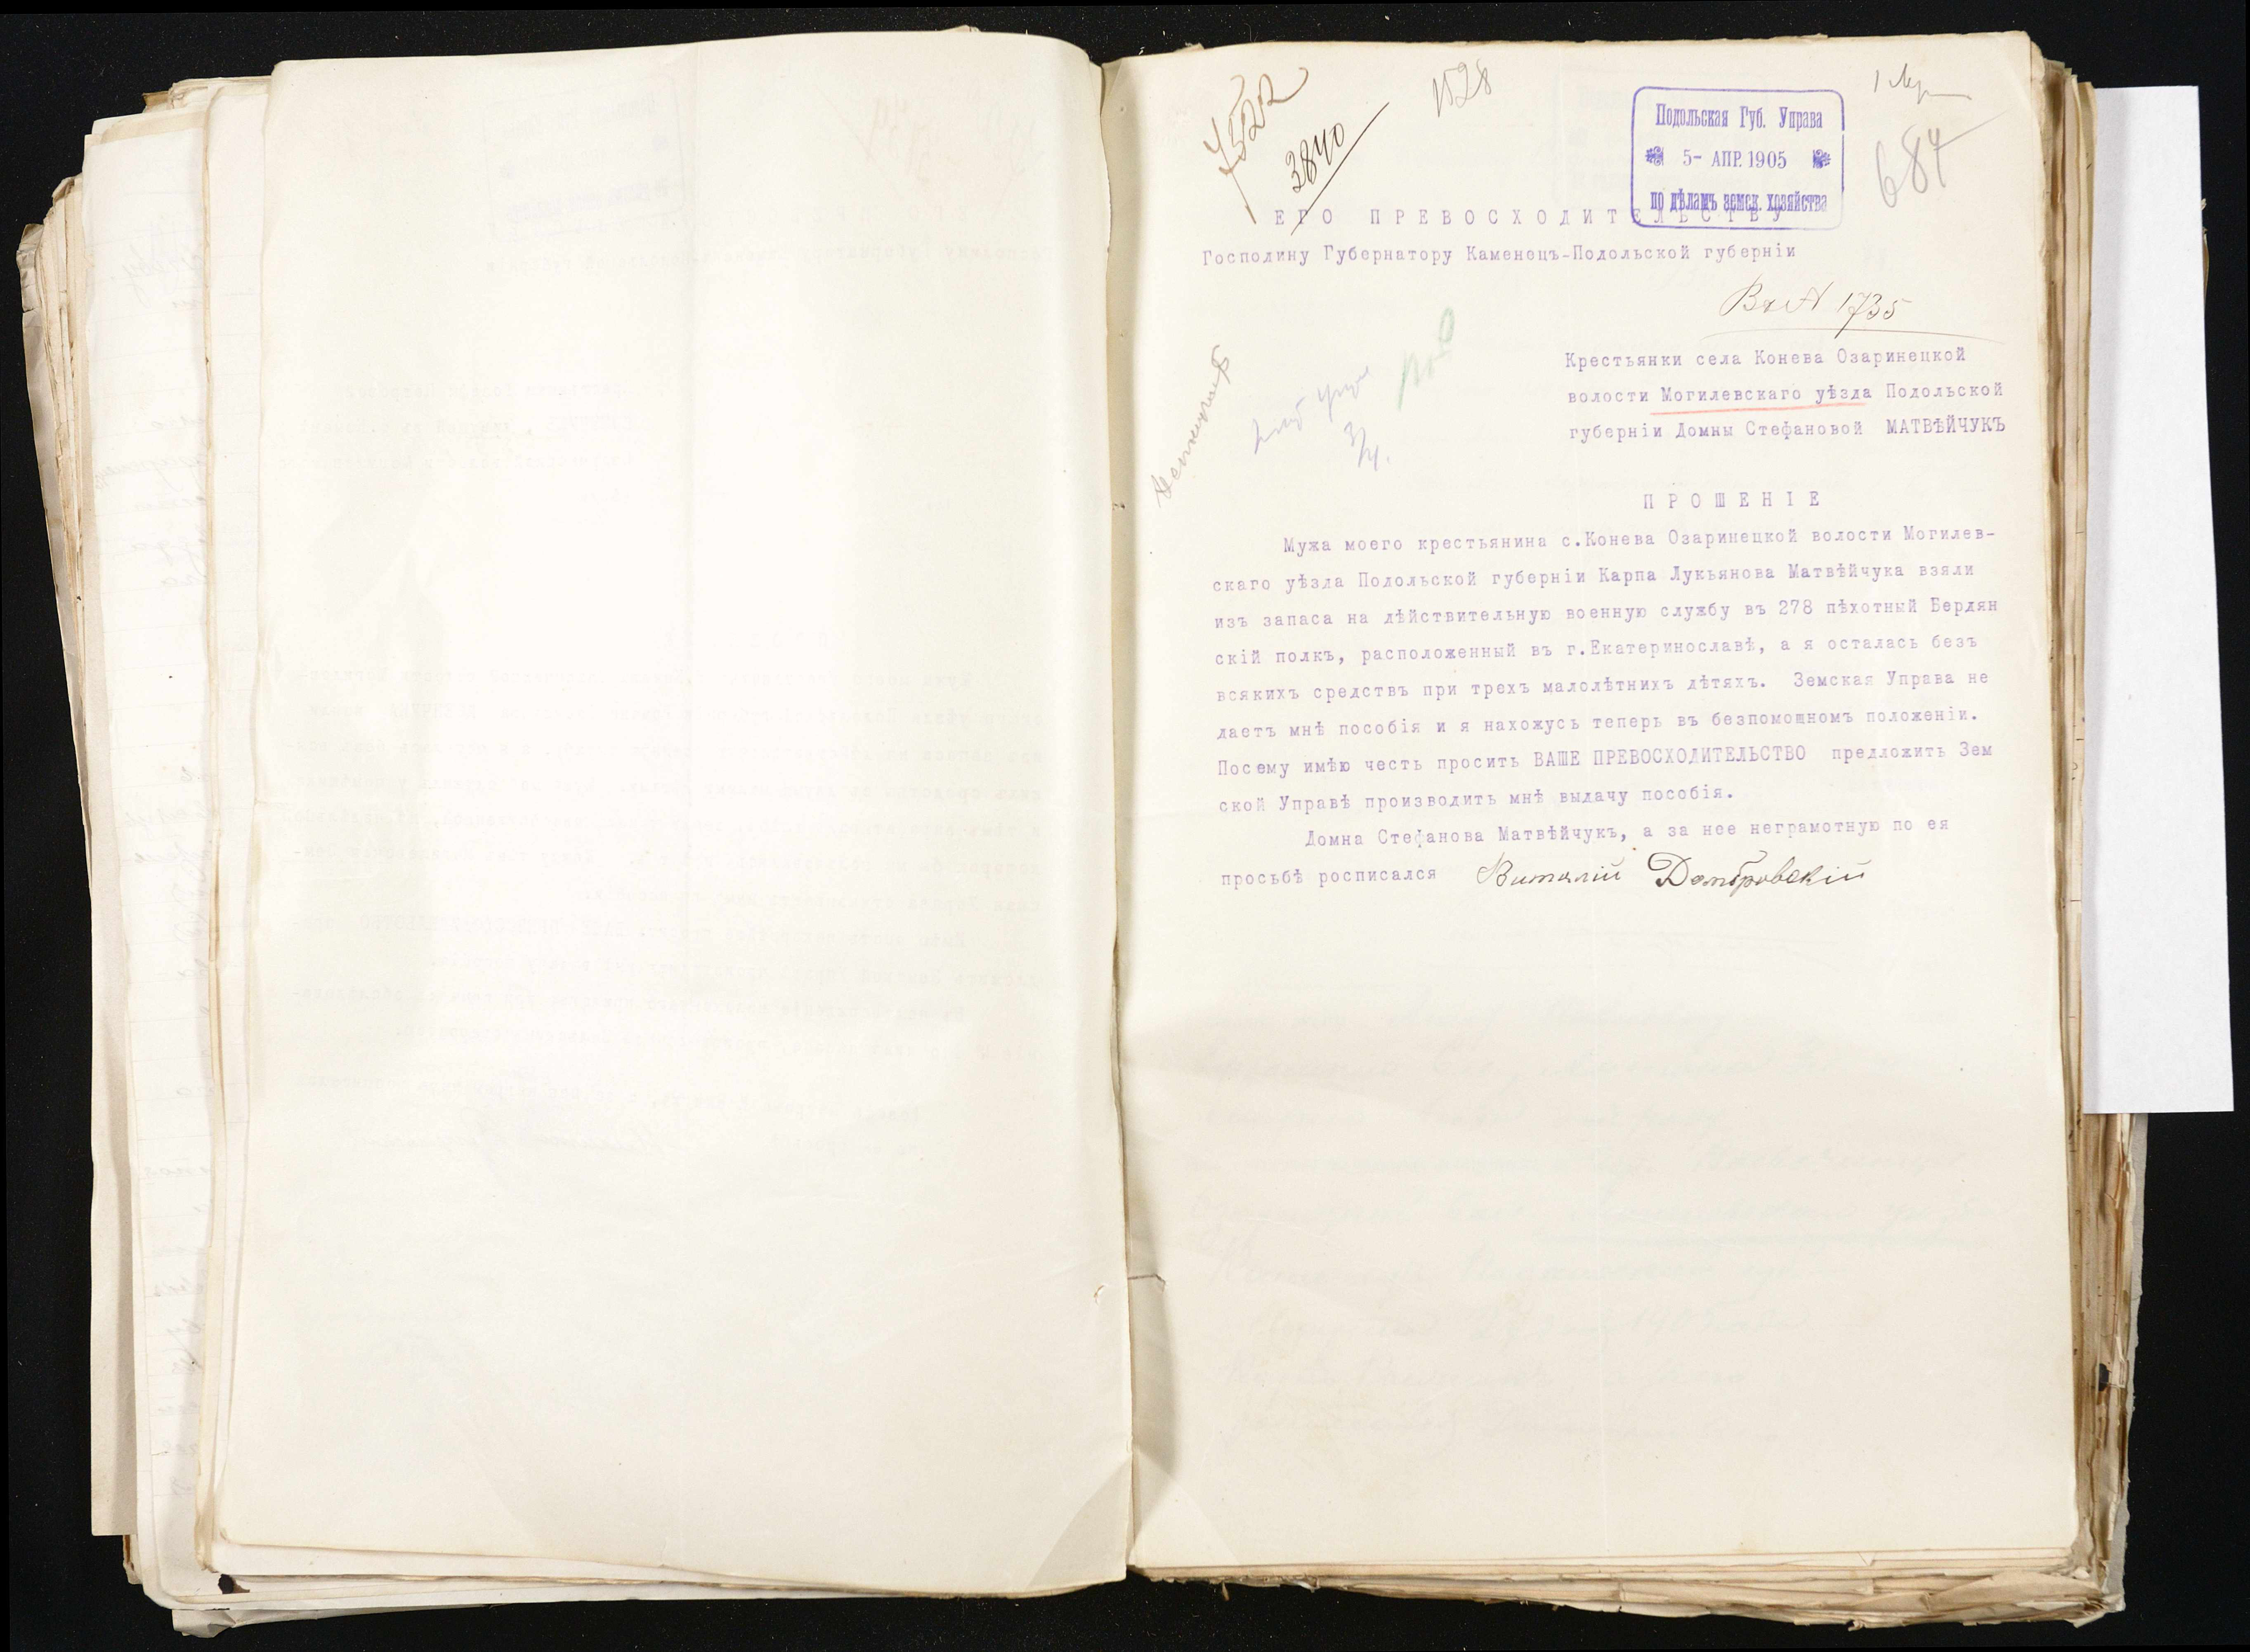 7522
3840
1528
Подольская Губ. Управа
5- АПР. 1905
по дѣламъ земск. хозяйства
684
ЕГО ПРЕВОСХОДИТЕЛЬСТВУ
Господину Губернатору Каменецъ-Подольской губерніи
1735
Крестьянки села Конева Озаринецкой
волости Могилевскаго уѣзда Подольской
губерніи Домны Стефановой МАТВѢЙЧУКЪ
3/4.
ПРОШЕНІЕ
Мужа моего крестьянина с.Конева Озаринецкой волости Могилев-
скаго уѣзда Подольской губерніи Карпа Лукьянова Матвѣйчука взяли
изъ запаса на дѣйствительную военную службу въ 278 пѣхотный Бердян
скій полкъ, расположенный въ г.Екатеринославѣ, а я осталась безъ
всякихъ средствъ при трехъ малолѣтнихъ дѣтяхъ. Земская Управа не
даетъ мнѣ пособія и я нахожусь теперь въ безпомощномъ положеніи.
Посему имѣю честь просить ВАШЕ ПРЕВОСХОДИТЕЛЬСТВО предложить Зем
ской Управѣ производить мнѣ выдачу пособія.
Домна Стефанова Матвѣйчукъ, а за нее неграмотную по ея
просьбѣ росписался Виталій Домбровскій